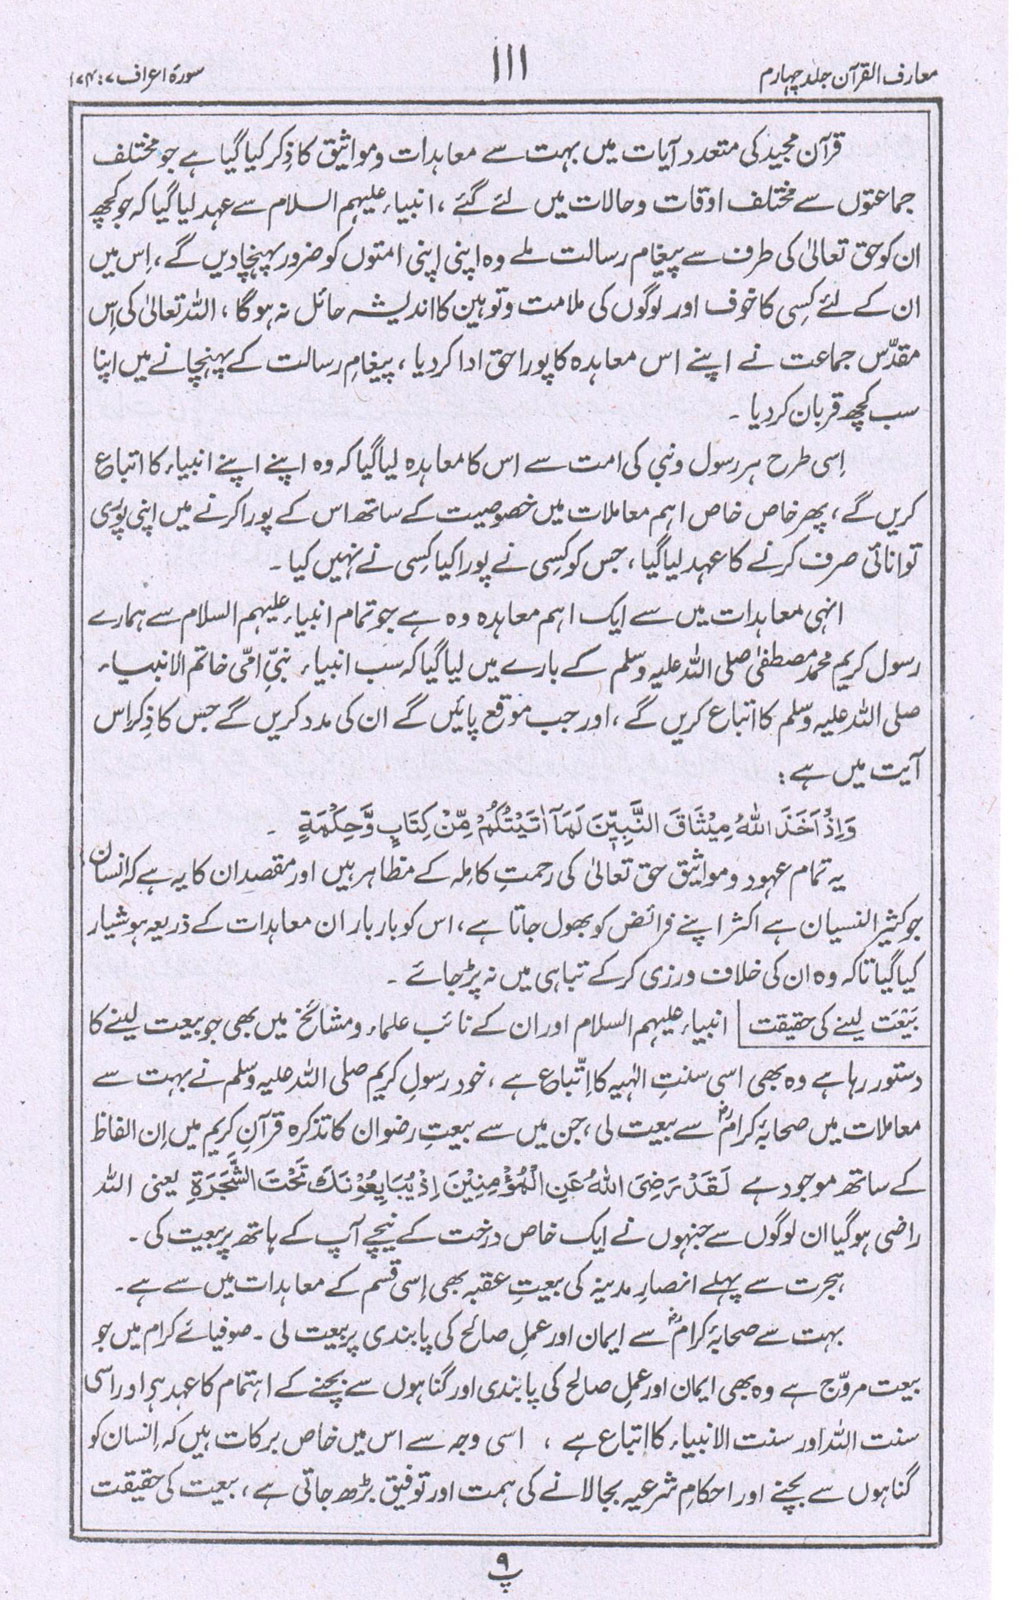 معارف القرآن جلد چہارم
۱۱۱
سورۂ اعراف ۷ : ۱۷۴
قرآن مجید کی متعدد آیات میں بہت سے معاہدات و مواثیق کا ذِکر کیا گیا ہے جو مختلف
جماعتوں سے مختلف اوقات و حالات میں لئے گئے ، انبیاء علیہم السلام سے عہد لیا گیا کہ جو کچھ
ان کو حق تعالیٰ کی طرف سے پیغام رسالت ملے وہ اپنی اپنی امتوں کو ضرور پہنچا دیں گے ، اِس میں
ان کے لئے کسِی کا خوف اور لوگوں کی ملامت و توہین کا اندیشہ حائل نہ ہوگا ، اللہ تعالیٰ کی اِس
مقدّس جماعت نے اپنے اس معاہدہ کا پورا حق ادا کر دیا ، پیغامِ رسالت کے پہنچانے میں اپنا
سب کچھ قربان کر دیا ۔
اِسی طرح ہر رسول و نبی کی امت سے اس کا معاہدہ لیا گیا کہ وہ اپنے اپنے انبیاء کا اتباع
کریں گے ، پھر خاص خاص اہم معاملات میں خصوصیت کے ساتھ اس کے پورا کرنے میں اپنی پوُری
توانائی صرف کرنے کا عہد لیا گیا ، جس کو کسِی نے پورا کیا کسِی نے نہیں کیا ۔
انہی معاہدات میں سے ایک اہم معاہدہ وہ ہے جو تمام انبیاء علیہم السلام سے ہمارے
رسول کریم محمد مصطفیٰ صلی اللہ علیہ وسلم کے بارے میں لیا گیا کہ سب انبیاء نبیِّ امّی خاتم الانبیاء
صلی اللہ علیہ وسلم کا اتباع کریں گے ، اور جب موقع پائیں گے ان کی مدد کریں گے جس کا ذِکر اِس
آیت میں ہے :
وَاِذْ اَخَذَ اللّٰهُ مِيْثَاقَ النَّبِيّٖنَ لَمَآ اٰتَيْتُكُمْ مِّنْ كِتَابٍ وَّحِكْمَةٍ ۔
یہ تمام عہود و مواثیق حق تعالیٰ کی رحمتِ کاملہ کے مظاہر ہیں اور مقصد ان کا یہ ہے کہ انسان
جو کثیر النسیان ہے اکثر اپنے فرائض کو بھول جاتا ہے ، اس کو بار بار ان معاہدات کے ذریعہ ہوشیار
کیا گیا تاکہ وہ ان کی خلاف ورزی کرکے تباہی میں نہ پڑ جائے ۔
بَیْعَت لینے کی حقیقت انبیاء علیہم السلام اور ان کے نائب علماء و مشائخ میں بھی جو بیعت لینے کا
دستور رہا ہے وہ بھی اسی سنتِ الٰہیہ کا اِتّباع ہے ، خود رسولِ کریم صلی اللہ علیہ وسلم نے بہت سے
معاملات میں صحابۂ کرامؓ سے بیعت لی ، جن میں سے بیعتِ رضوان کا تذکرہ قرآنِ کریم میں اِن الفاظ
کے ساتھ موجود ہے لَقَدْ رَضِیَ اللّٰهُ عَنِ الْمُؤْمِنِيْنَ اِذْ يُبَايِعُوْنَكَ تَحْتَ الشَّجَرَةِ یعنی اللہ
راضی ہوگیا ان لوگوں سے جنہوں نے ایک خاص درخت کے نیچے آپ کے ہاتھ پر بیعت کی ۔
ہجرت سے پہلے انصارِ مدینہ کی بیعتِ عقبہ بھی اِسی قسم کے معاہدات میں سے ہے ۔
بہت سے صحابۂ کرامؓ سے ایمان اور عملِ صالح کی پابندی پر بیعت لی ۔ صوفیائے کرام میں جو
بیعت مروّج ہے وہ بھی ایمان اور عملِ صالح کی پابندی اور گناہوں سے بچنے کے اہتمام کا عہد ہی اور اسی
سنت اللہ اور سنت الانبیاء کا اِتباع ہے ، اسی وجہ سے اس میں خاص برکات ہیں کہ اِنسان کو
گناہوں سے بچنے اور احکامِ شرعیہ بجا لانے کی ہمت اور توفیق بڑھ جاتی ہے ، بیعت کی حقیقت
پ ۹